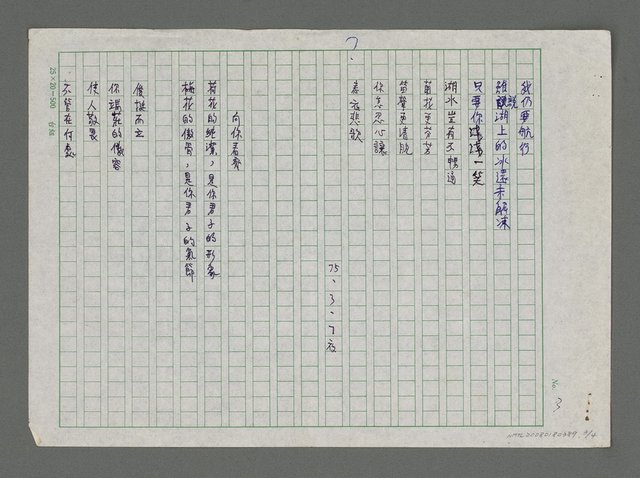 我仍要航行
雖說湖上的冰還未解凍
只要你淺淺一笑
湖水豈有不暢通
菊花更芬芳
笛聲更清脫
你怎忍心讓
春夜悲歌
75、3、7夜
向你看齊
荷花的純潔，是你君子的形象
梅花的傲骨，是你君子的氣節
傻挺而立
你端莊的儀容
使人敬畏
不管在何處
25×20=500
No. 3
NMTL20080180389, 3/4